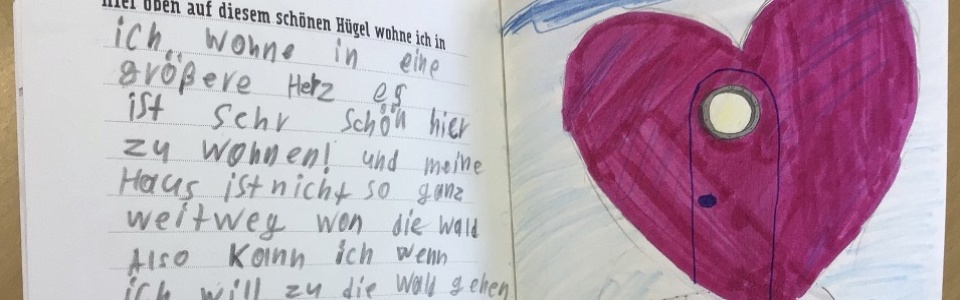 hier oben auf diesem schönen Hügel wohne ich in
ich wohne in eine
größere Herz es
ist sehr schön hier
zu wohnen! und meine
Haus ist nicht so ganz
weitweg won die wald
Also kann ich wenn
ich will zu die wald gehen